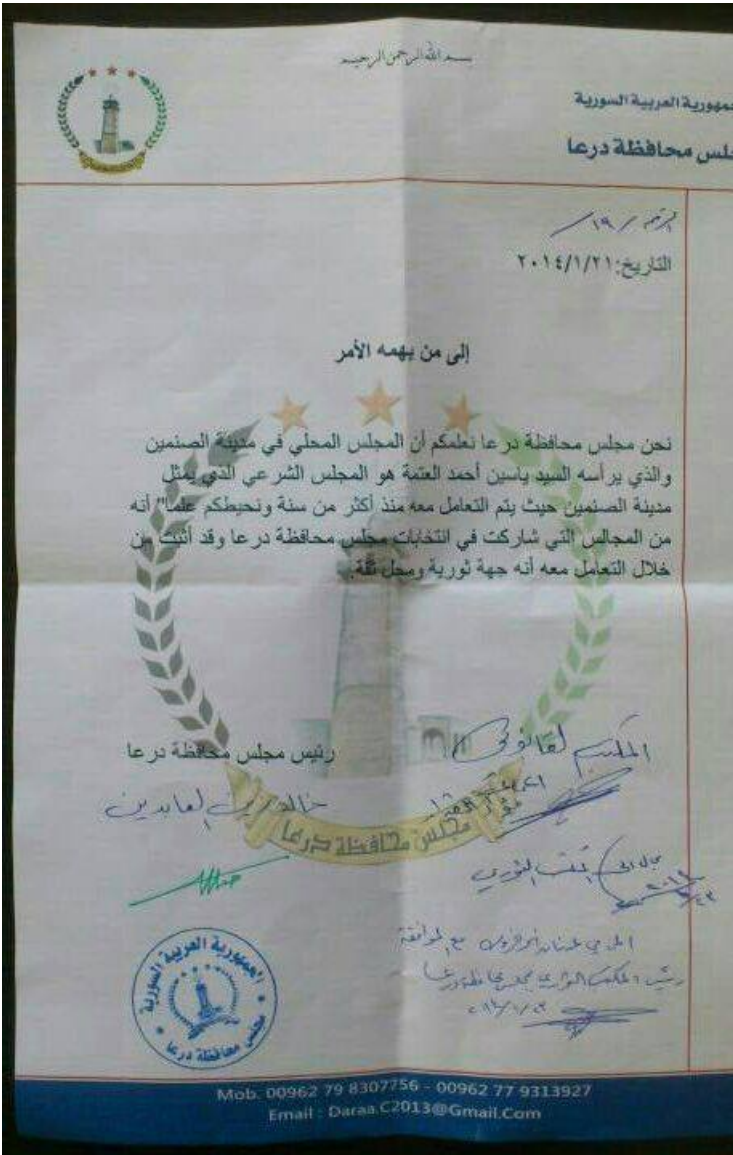 بسم الله الرحمن الرحيم
الجمهورية العربية السورية
مجلس محافظة درعا
الرقم / ١٩ /
التاريخ: ٢٠١٤/١/٢١
إلى من يهمه الأمر
نحن مجلس محافظة درعا نعلمكم أن المجلس المحلي في مدينة الصنمين
والذي يرأسه السيد ياسين أحمد العتمة هو المجلس الشرعي الذي يمثل
مدينة الصنمين حيث يتم التعامل معه منذ أكثر من سنة ونحيطكم علما" أنه
من المجالس التي شاركت في انتخابات مجلس محافظة درعا وقد أثبت من
خلال التعامل معه أنه جهة ثورية ومحل ثقة.
المكتب القانوني
رئيس مجلس محافظة درعا
خالد زين العابدين
مجلس محافظة درعا
الجمهورية العربية السورية
مجلس محافظة درعا
مع الموافقة
Mob. 00962 79 8307756 - 00962 77 9313927
Email : Daraa.C2013@Gmail.Com